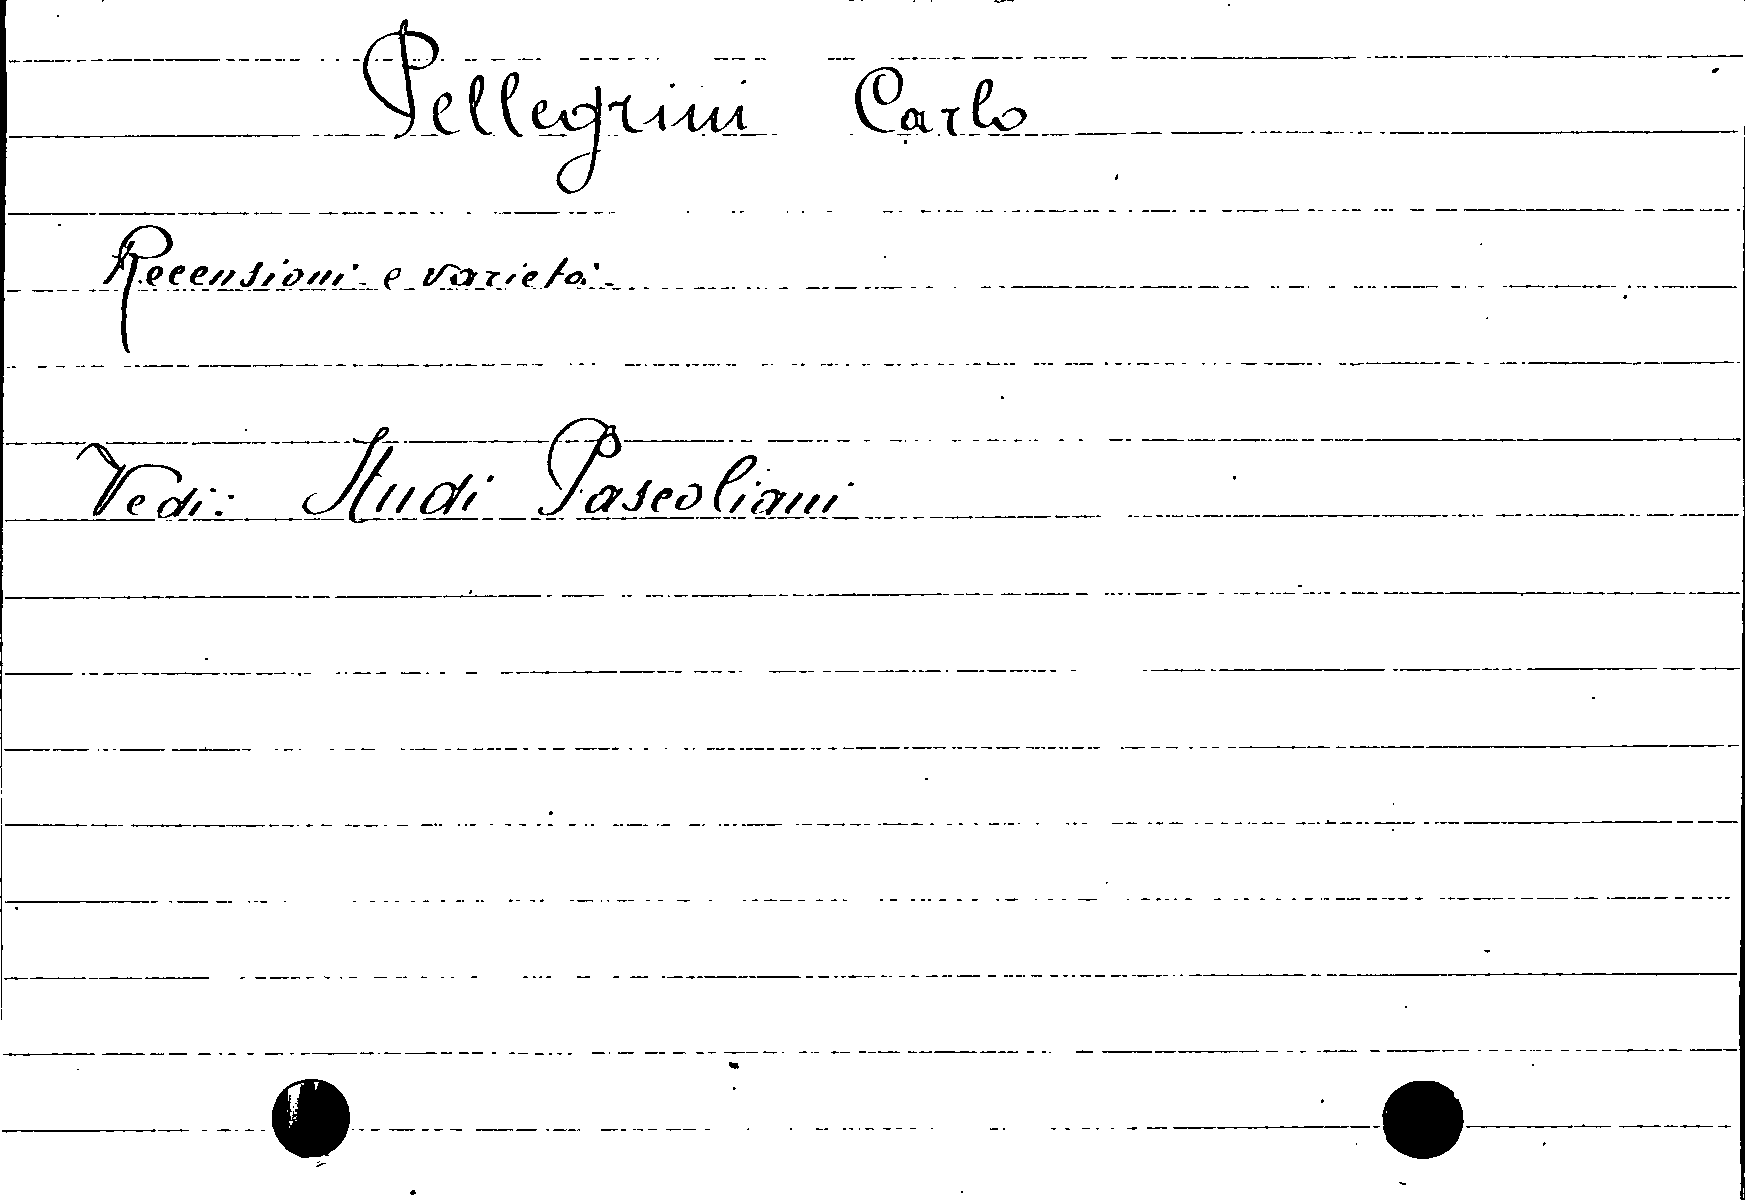 Pellegrini Carlo
Recensioni e varietà.
Vedi: Studi Pascoliani